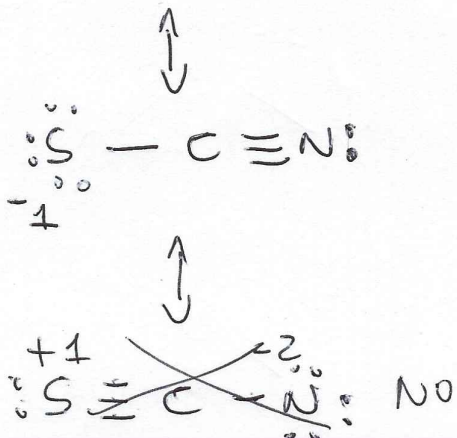 :S̈ — C ≡ N:
-1
+1 -2
:S ≡ C - N̈: NO